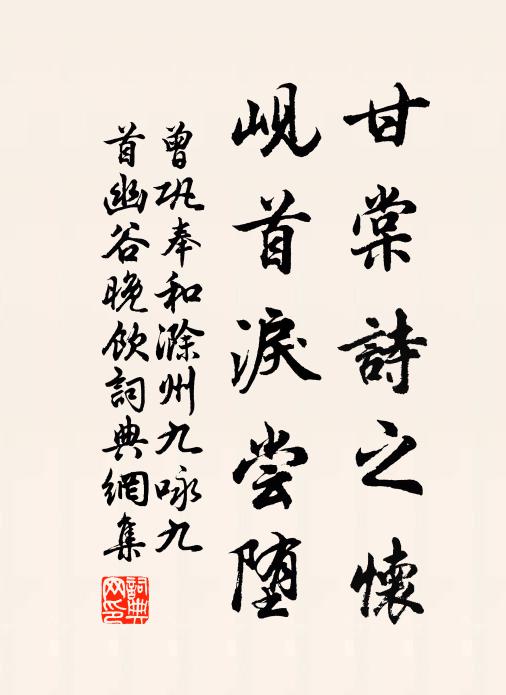 甘棠詩之懷
峴首淚尝堕
曾巩奉和滁州九咏九
首幽谷晚飲詞典網集
詞典网印